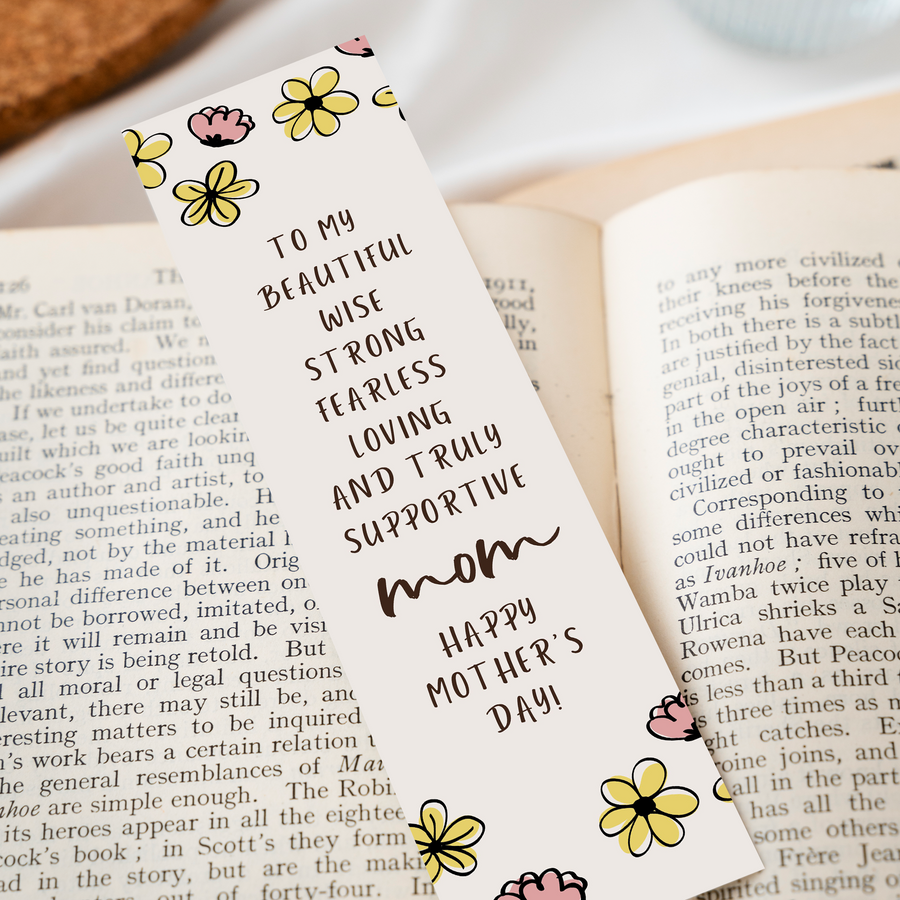 TO MY
BEAUTIFUL
WISE
STRONG
FEARLESS
LOVING
AND TRULY
SUPPORTIVE
mom
HAPPY
MOTHER'S
DAY!
126 Th
Mr. Carl van Doran, 1911,
consider his claim to good
faith assured. We lly,
and yet find question in
the likeness and differe
If we undertake to do
ase, let us be quite clear
uilt which we are lookin
eacock's good faith unq
an author and artist, to
also unquestionable. H
eating something, and he
dged, not by the material
e he has made of it. Orig
rsonal difference between on
nnot be borrowed, imitated, o
ere it will remain and be visi
ire story is being retold. But
all moral or legal questions
levant, there may still be, and
eresting matters to be inquired
's work bears a certain relation
he general resemblances of Mai
nhoe are simple enough. The Robi
its heroes appear in all the eightee
cock's book ; in Scott's they form
ad in the story, but are the maki
out of forty-four. In
to any more civilized
their knees before the
receiving his forgivene
In both there is a subtl
are justified by the fact
genial, disinterested sid
part of the joys of a fre
in the open air ; furt
degree characteristic
ought to prevail ov
civilized or fashionabl
Corresponding to
some differences whi
could not have refra
as Ivanhoe ; five of h
Wamba twice play
Ulrica shrieks a Sa
Rowena have each
comes. But Peaco
is less than a third
s three times as m
ght catches. Ex
oine joins, and
all in the part
has all the
some others
Frère Jea
spirited singing o